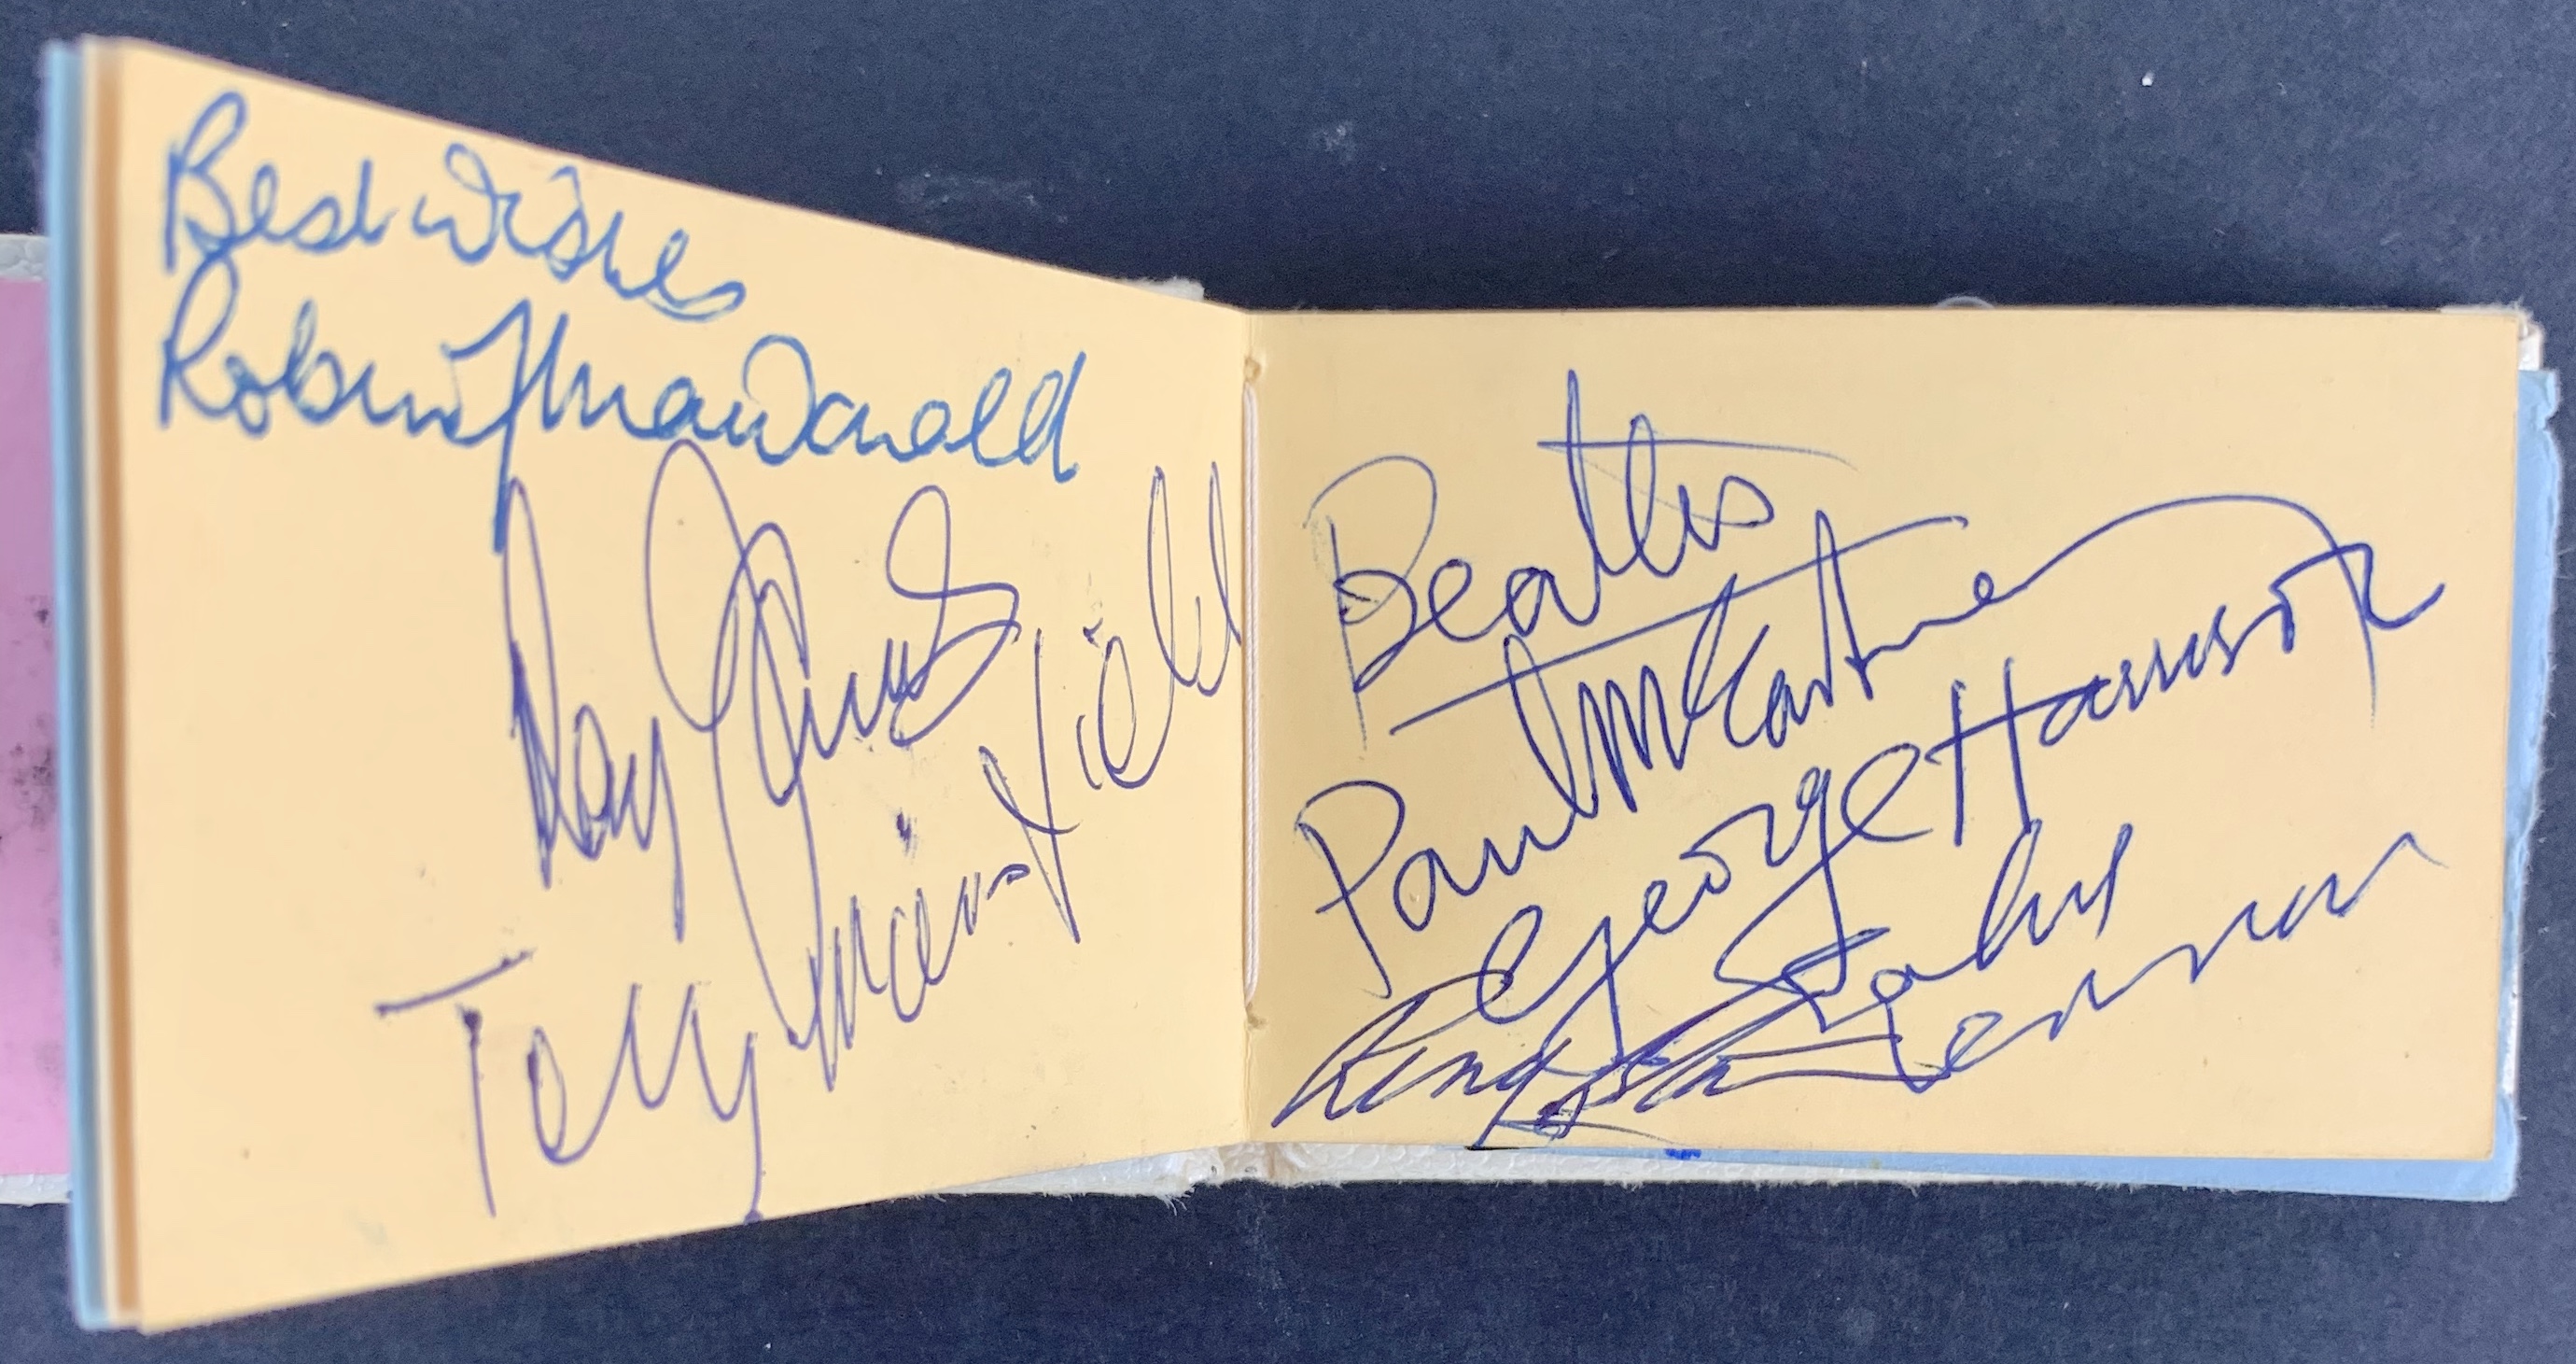 Best wishes
Robin MacDonald
Ray Jones
Tony Mansfield
Beatles
Paul McCartney
George Harrison
John
Lennon
Ringo Starr